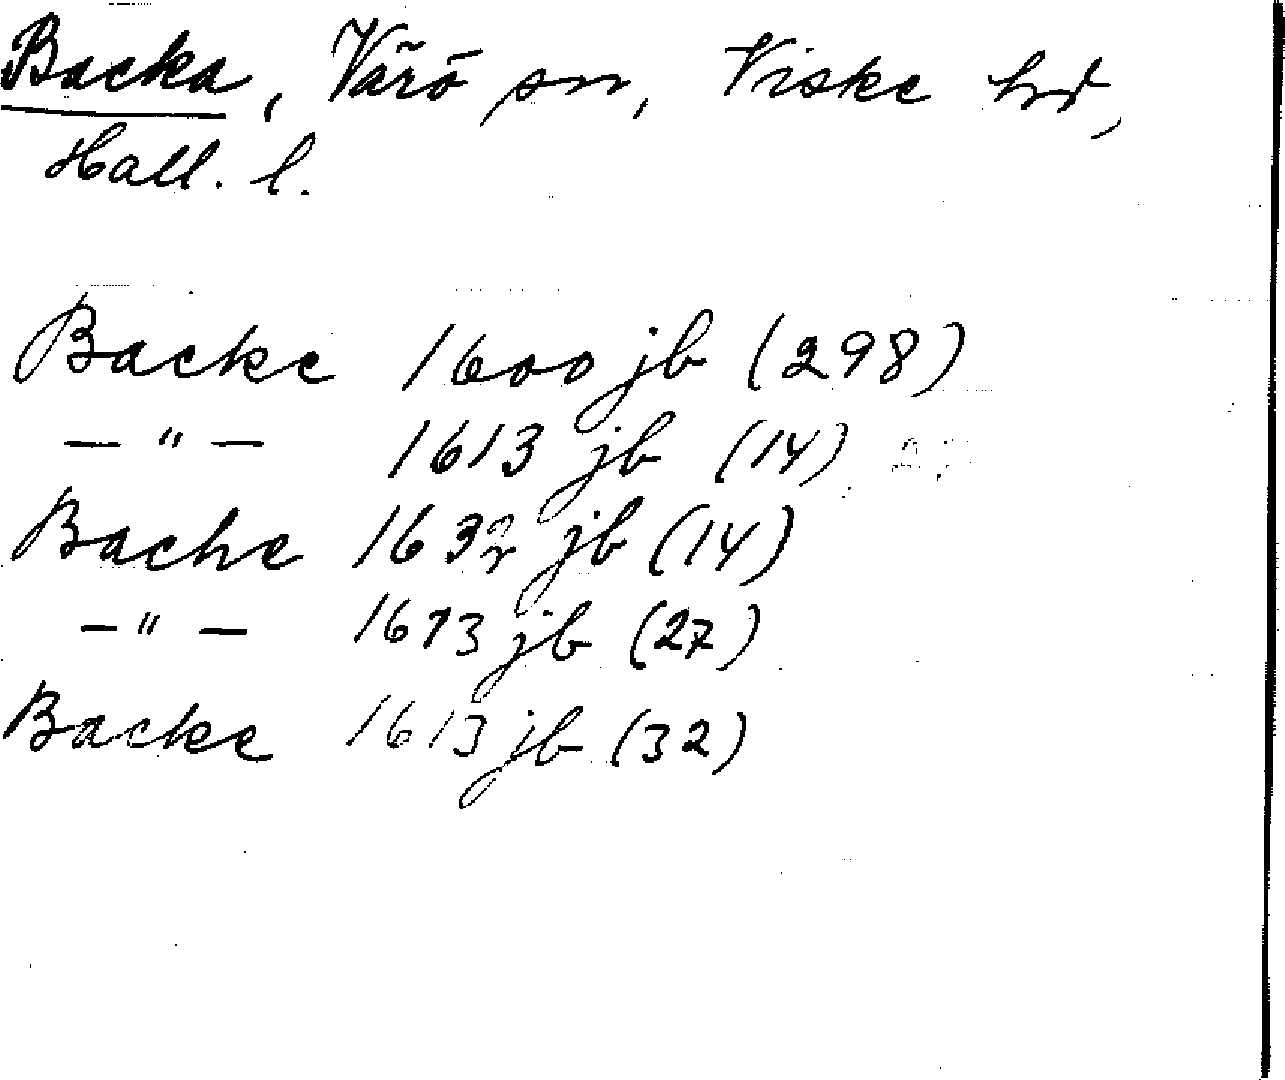 Backa, Värö sn, Viske hd,
Hall. l.
Backe 1600 jb (298)
— " — 1613 jb (14)
Bache 1632 jb (14)
— " — 1673 jb (27)
Backe 1613 jb (32)